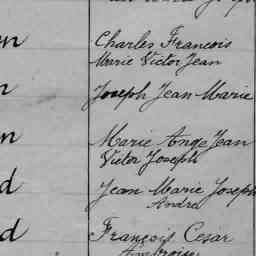 Charles François
Marie Victor Jean
Joseph Jean Marie
Marie Ange Jean
Victor Joseph
Jean Marie Joseph
André
François Cesar
Ambroise